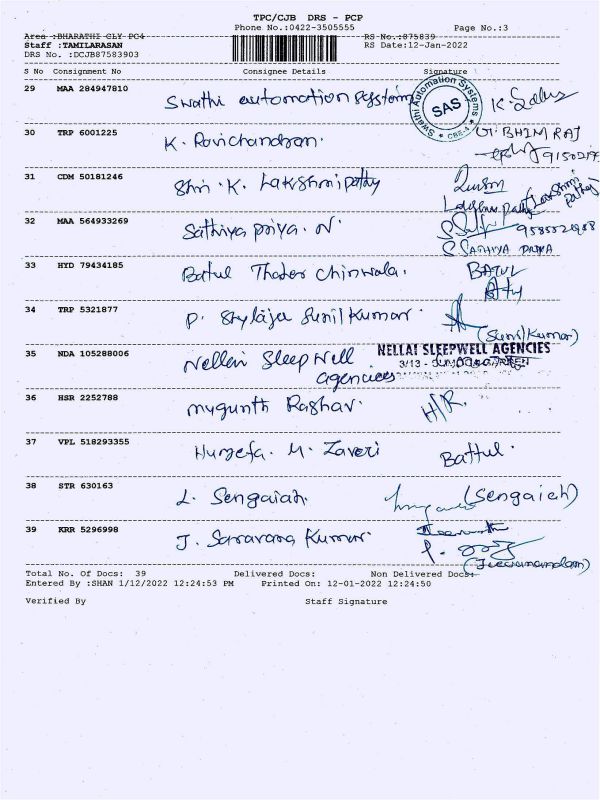 TPC/CJB DRS - PCP
Phone No.:0422-3505555 Page No.:3
Area :BHARATHI CLY PC4 RS No.:875839
Staff :TAMILARASAN RS Date:12-Jan-2022
DRS No. :DCJB87583903
S No Consignment No Consignee Details Signature
29 MAA 284947810 Swathi automation systems
Swathi Automation Systems
SAS
CBE-4
30 TRP 6001225 K. Ravichandran. G. BHIM RAJ
31 CDM 50181246 Shri. K. Lakshmipathy
Lakshmi pathy
32 MAA 564933269 Sathiya priya. N.
S SATHIYA PRIYA
33 HYD 79434185 Batul Thaher Chinwala. BATUL
34 TRP 5321877 P. Shylaja Sunil Kumar.
(Sunil Kumar)
35 NDA 105288006 Nellai Sleep Well NELLAI SLEEPWELL AGENCIES
agencies 3/13 -
36 HSR 2252788 mygunth Raghav. H/R.
37 VPL 518293355 Huzefa. M. Zaveri Battul.
38 STR 630163 L. Sengaiah. (Sengaieh)
39 KRR 5296998 J. Saravana Kumar.
(Jeevanandam)
Total No. Of Docs: 39 Delivered Docs: Non Delivered Docs:
Entered By :SHAN 1/12/2022 12:24:53 PM Printed On: 12-01-2022 12:24:50
Verified By Staff Signature